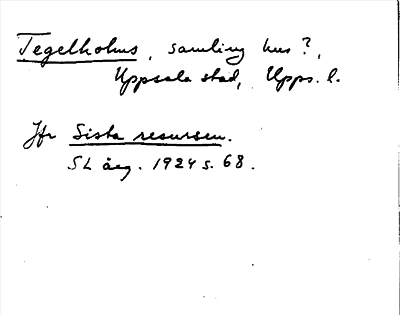 Tegelhohus, samling hus?,
Uppsala stad, Upps. l.
Jfr Sista resursen.
SL årg. 1924 s. 68.